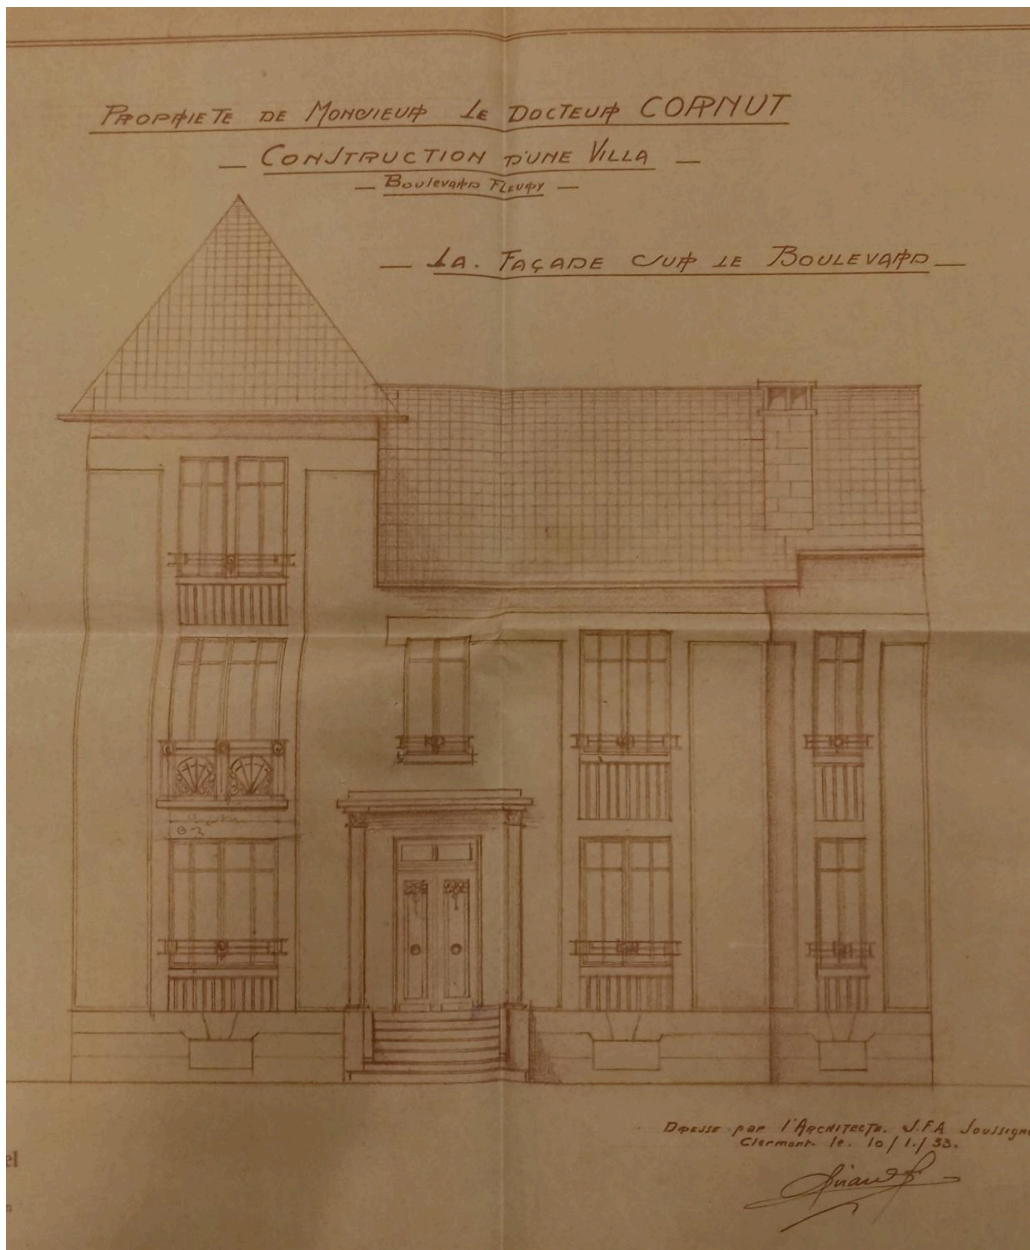 PROPRIETE DE MONSIEUR LE DOCTEUR CORNUT
CONSTRUCTION D'UNE VILLA
BOULEVARD FLEURY
LA. FAÇADE SUR LE BOULEVARD
DRESSE par l'ARCHITECTE. J.F.A
Clermont le. 10/1./33.
el